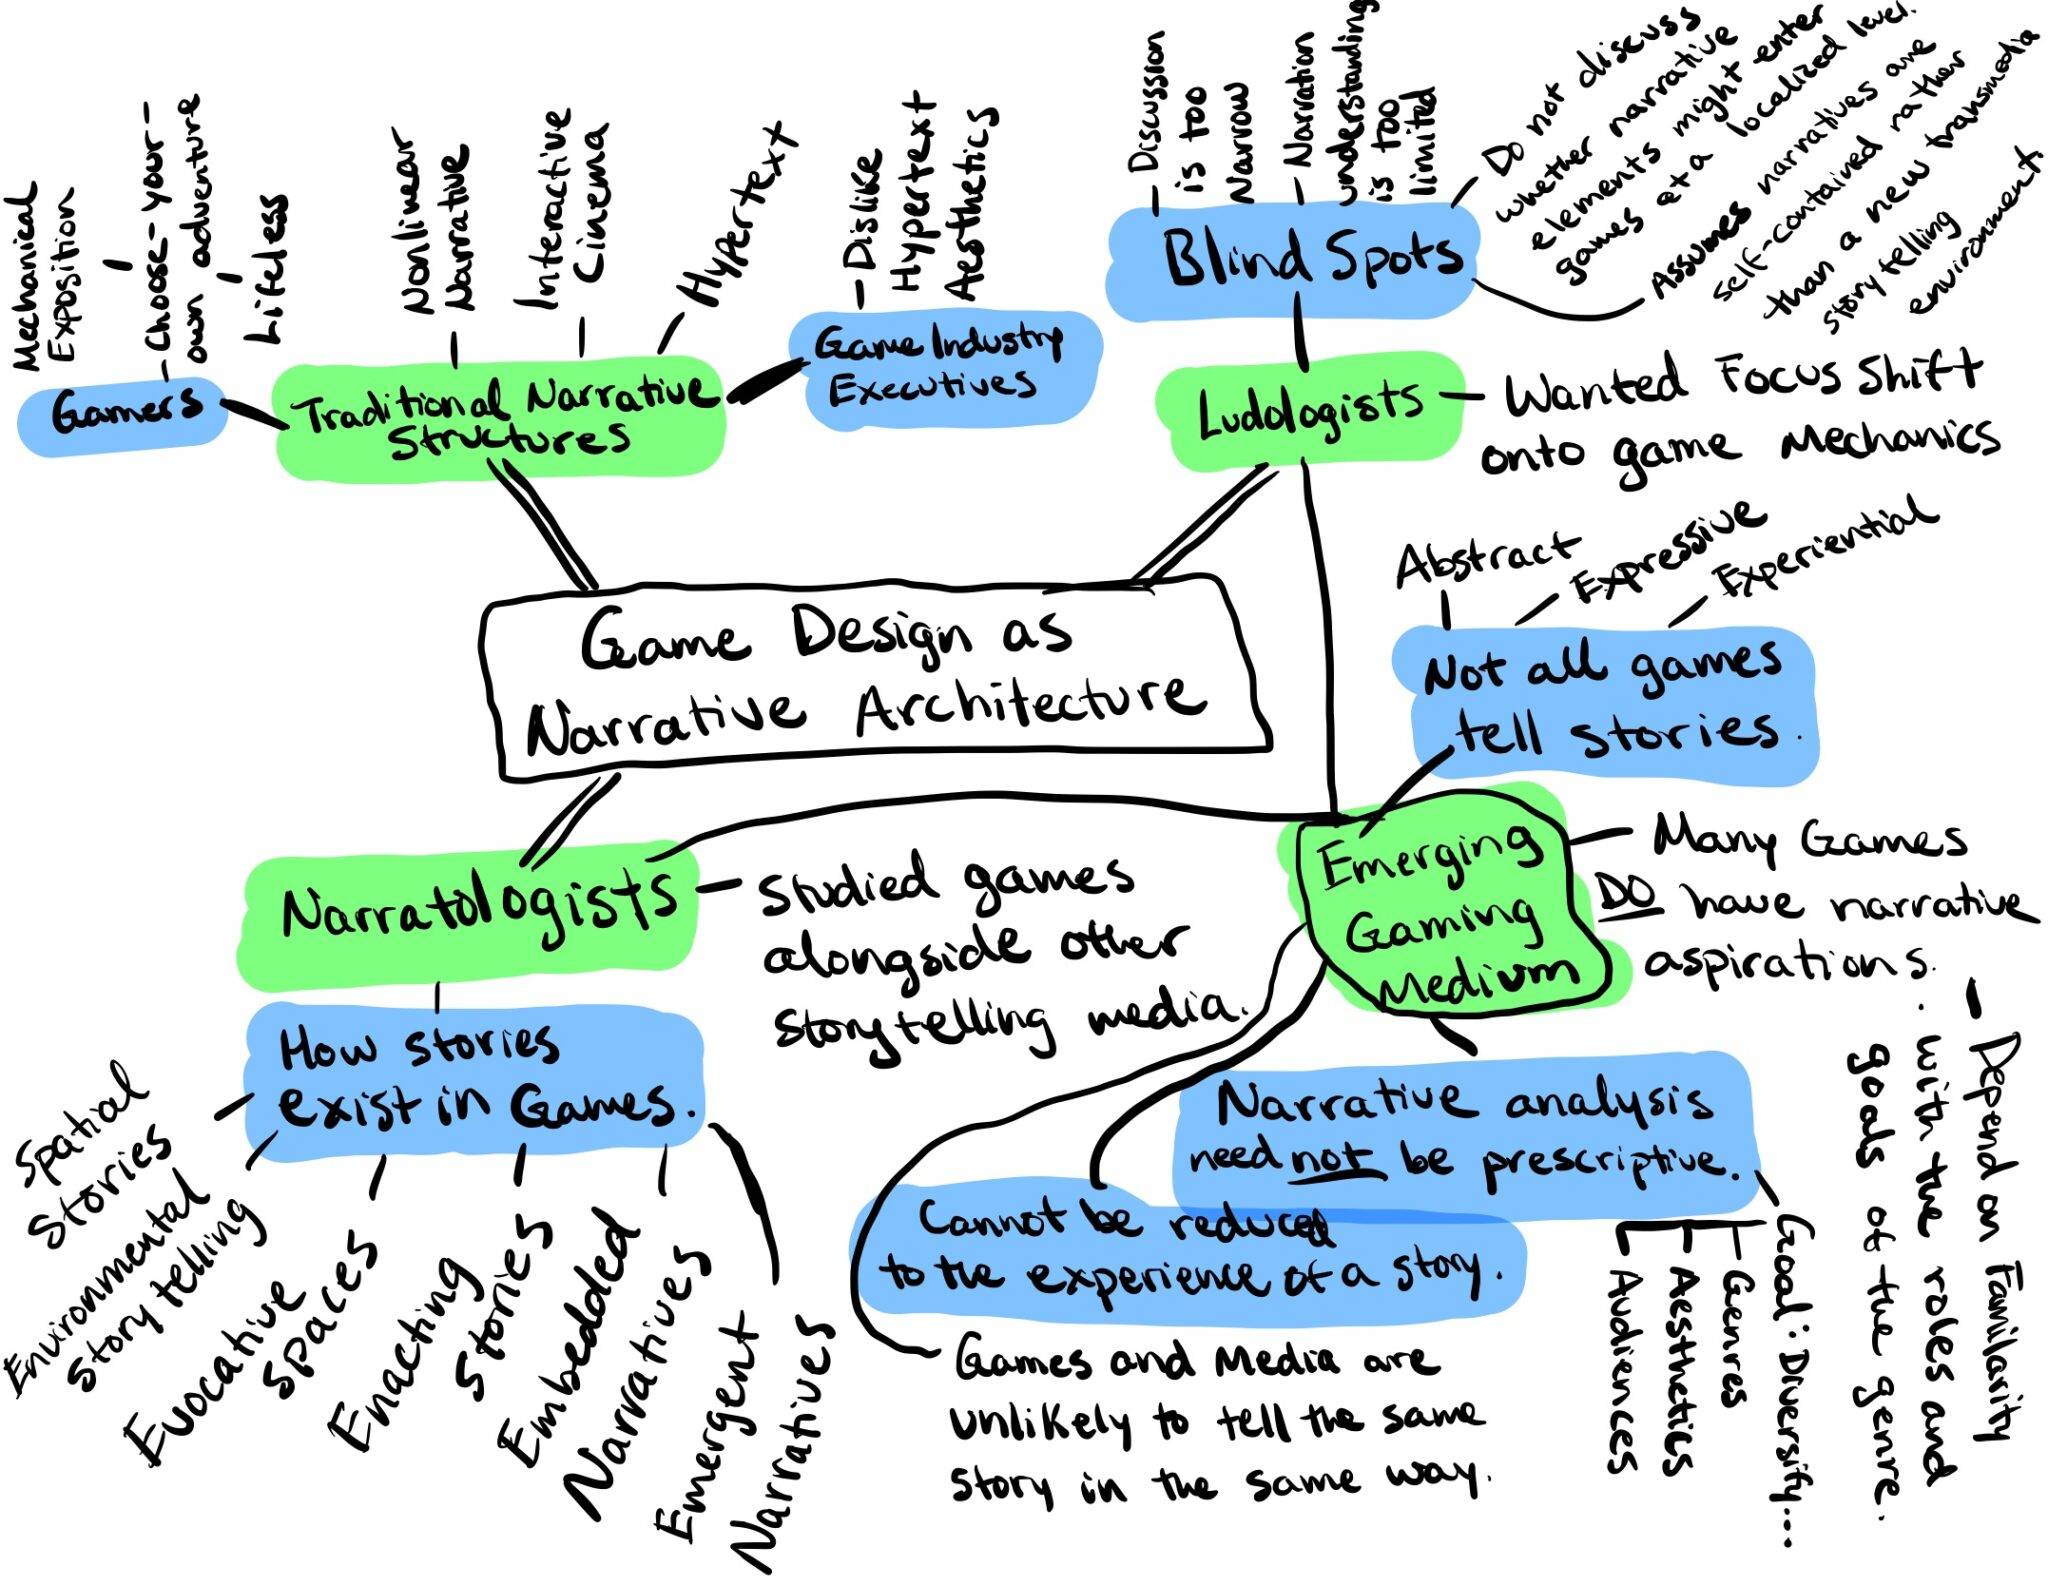 Mechanical
Exposition
- Choose-your-
own adventure
Lifeless
Gamers
Nonlinear
Narrative
Interactive
Cinema
Hypertext
Traditional Narrative
Structures
- Dislike
Hypertext
Aesthetics
Game Industry
Executives
- Discussion
is too
Narrow
- Narration
understanding
is too
limited
Do not discuss
whether narrative
elements might enter
games at a localized level.
Assumes narratives are
self-contained rather
than a new transmedia
story telling
environment.
Blind Spots
Ludologists
- Wanted Focus Shift
onto game Mechanics
Game Design as
Narrative Architecture
Abstract
Expressive
Experiential
Not all games
tell stories.
Emerging
Gaming
Medium
- Many Games
DO have narrative
aspirations.
- Depend on Familarity
with the roles and
goals of the genre.
Narratologists
- Studied games
alongside other
storytelling media.
How stories
exist in Games.
Spatial
Stories
Environmental
Story telling
Evocative
Spaces
Enacting
Stories
Embedded
Narratives
Emergent
Narratives
Narrative analysis
need not be prescriptive.
Goal: Diversify...
Genres
Aesthetics
Audiences
Cannot be reduced
to the experience of a story.
Games and Media are
unlikely to tell the same
story in the same way.